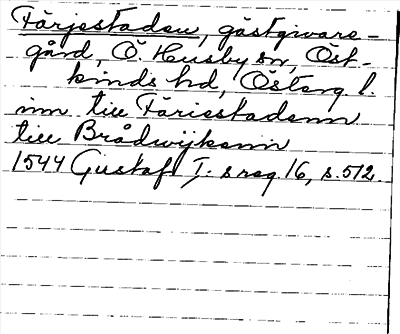 Färjestaden, gästgivare-
gård, Ö. Husby sn, Öst-
kinds hd, Österg. l.
inn till Färiestadenn
till Brådwijkenn
1544 Gustaf I. s reg. 16, s. 512.